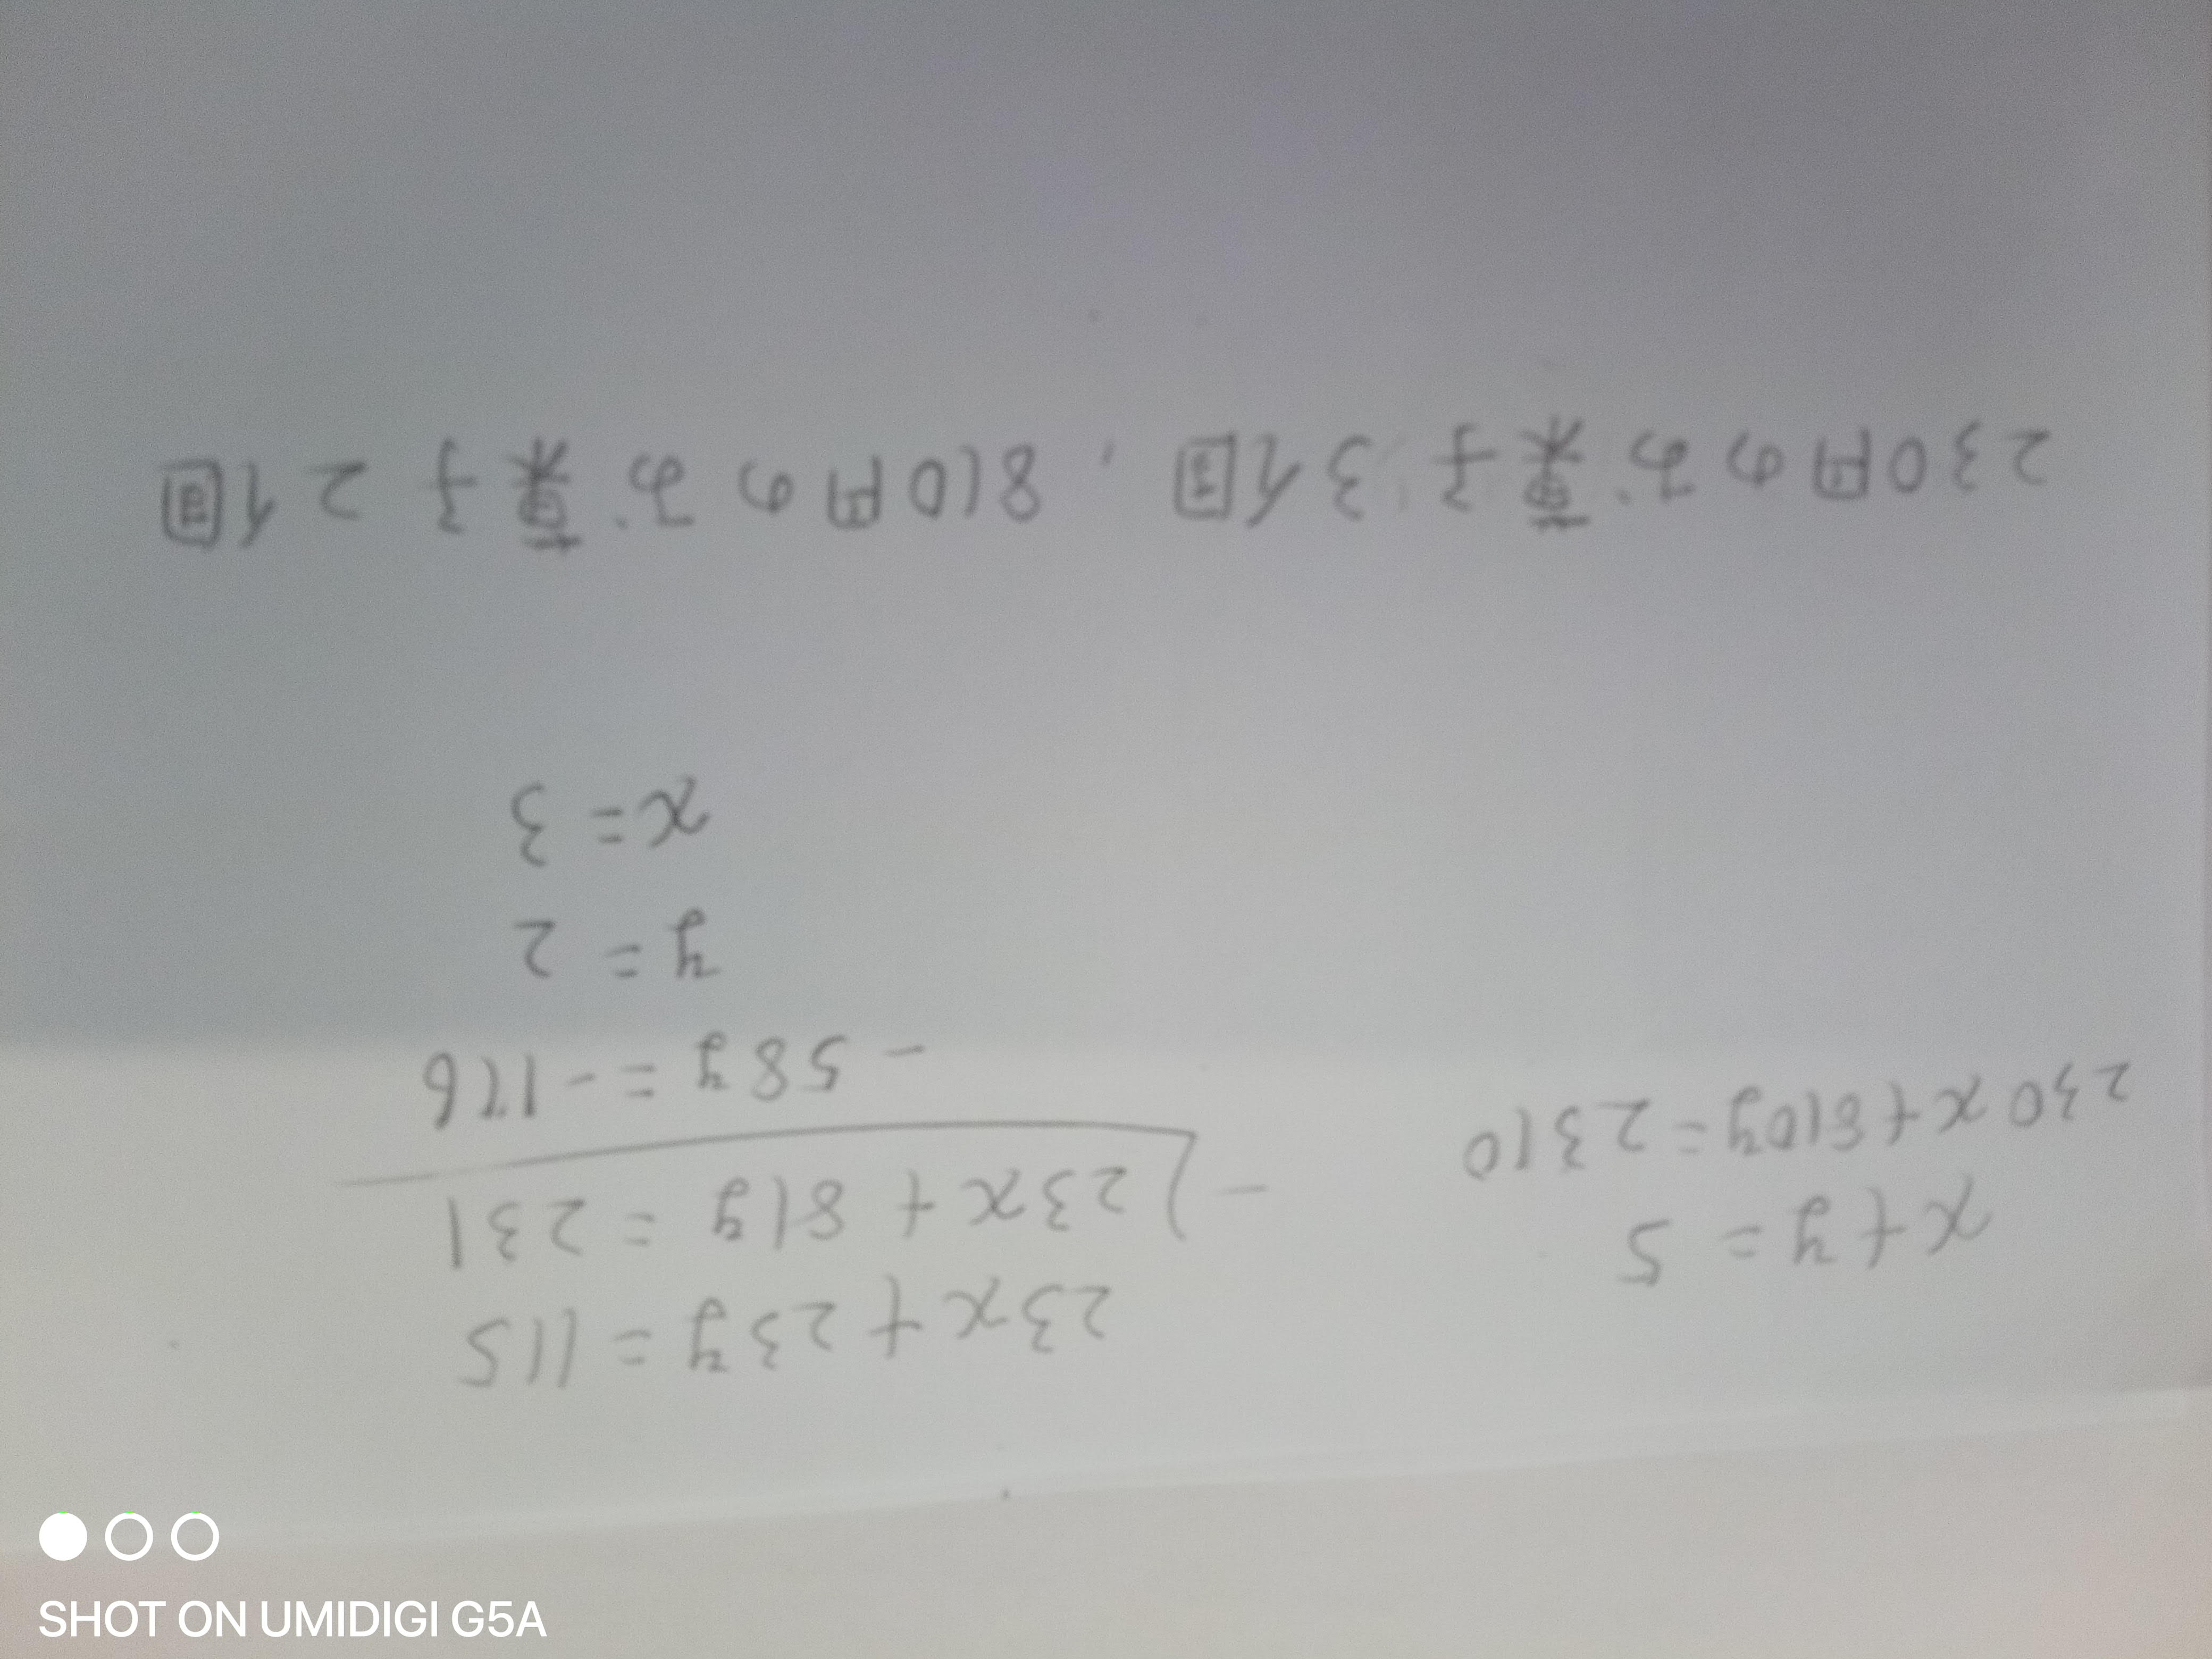 x+y=5
230x+810y=2310
23x+23y=115
-)23x+81y=231
-58y=-116
y=2
x=3
230円のお菓子3個, 810円のお菓子2個
SHOT ON UMIDIGI G5A